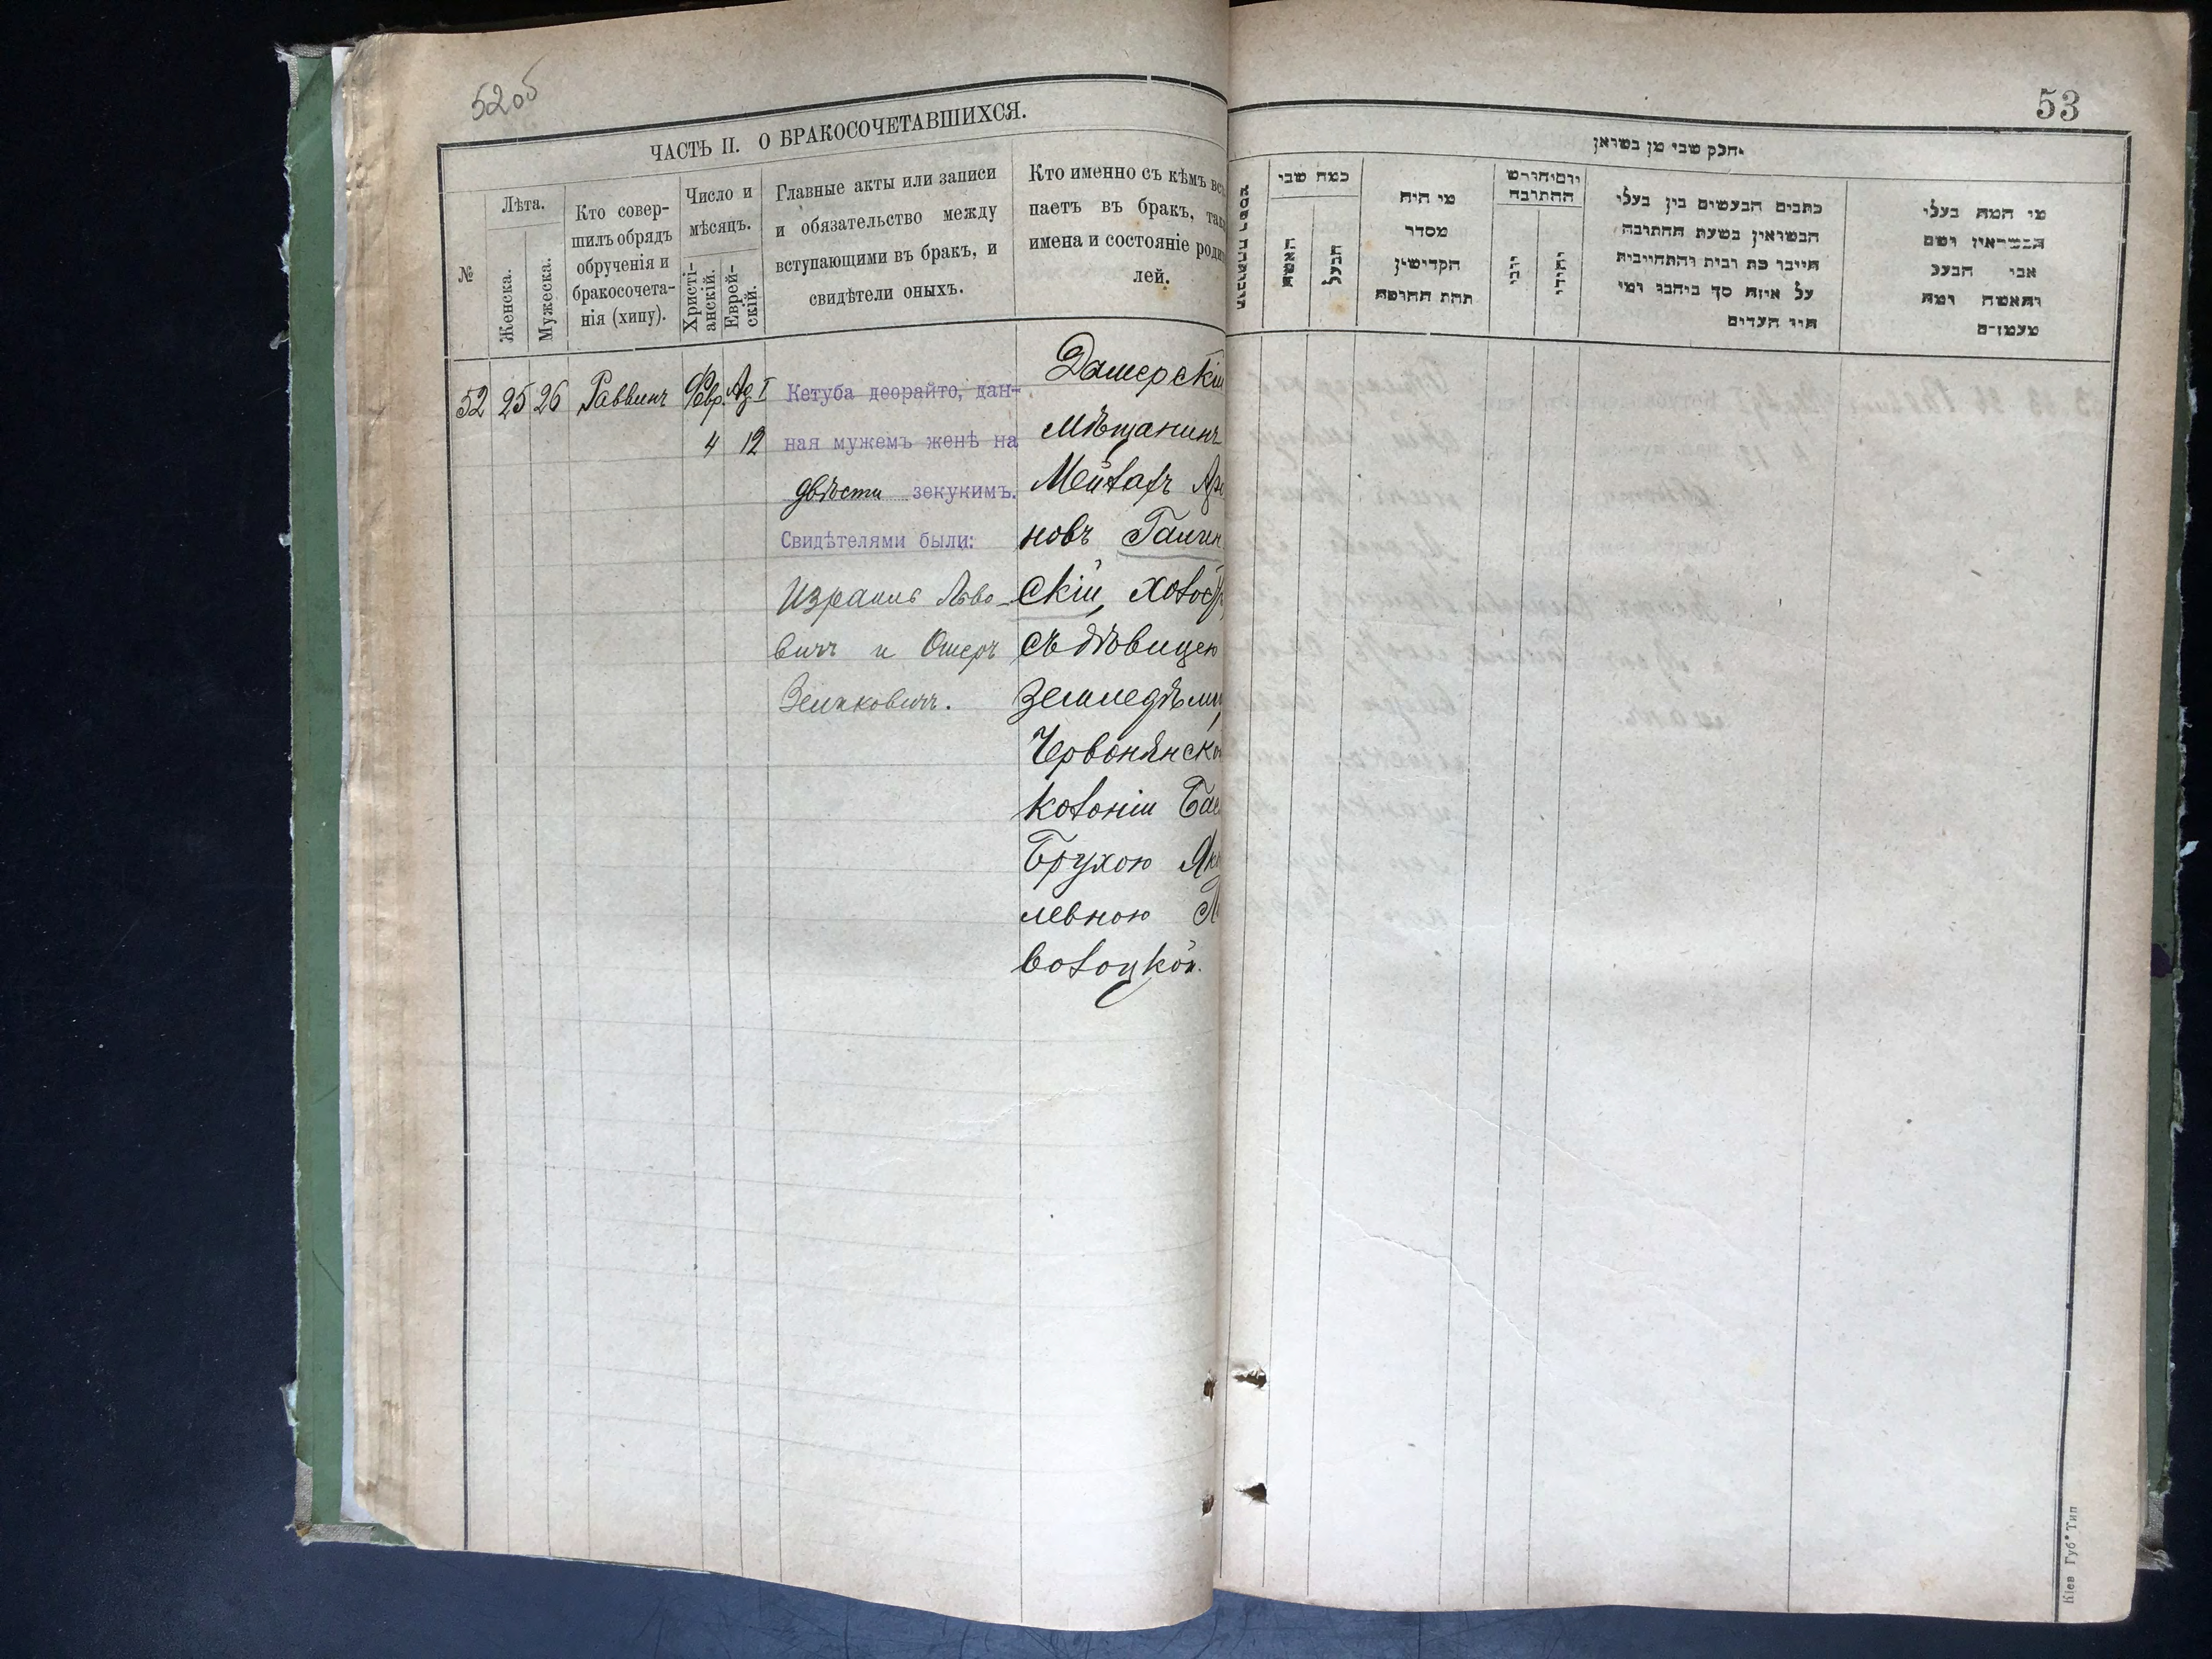 52 об
ЧАСТЬ II. О БРАКОСОЧЕТАВШИХСЯ.
№
Лѣта.
Женска.
Мужеска.
Кто совер-
шилъ обрядъ
обрученія и
бракосочета-
нія (хипу).
Число и
мѣсяцъ.
Христі-
анскій.
Еврей-
скій.
Главные акты или записи
и обязательство между
вступающими въ бракъ, и
свидѣтели оныхъ.
Кто именно съ кѣмъ вс
паетъ въ бракъ, так
имена и состояніе роди
лей.
52 25 26 Раввинъ Февр. Ад. I
4 12
Кетуба деорайто, дан-
ная мужемъ женѣ на
двѣсти зекукимъ.
Свидѣтелями были:
Израиль Льво-
вичъ и Ошеръ
Зельковичъ.
Дашерскій
мѣщанинъ
Мейлахъ Аро
новъ Галин
скій, холост
съ дѣвицею
земледѣль
Червонянско
колоніи Бас
Брухою Янк
левною
волоцкой.
53
חלק שני מן נשואין
כמה שני
האשה
הבעל
מי היה
מסדר
הקדושין
תחת החופה
יום וחודש
החתונה
יוני
יהודי
כתבים הנעשים בין בעלי
הנשואין בשעת החתונה
על איזה סך כיתבו ומי
היו העדים
מי המה בעלי
הנשואין ושם
אבי הבעל
והאשה ומה
Кіев Губ. Тип